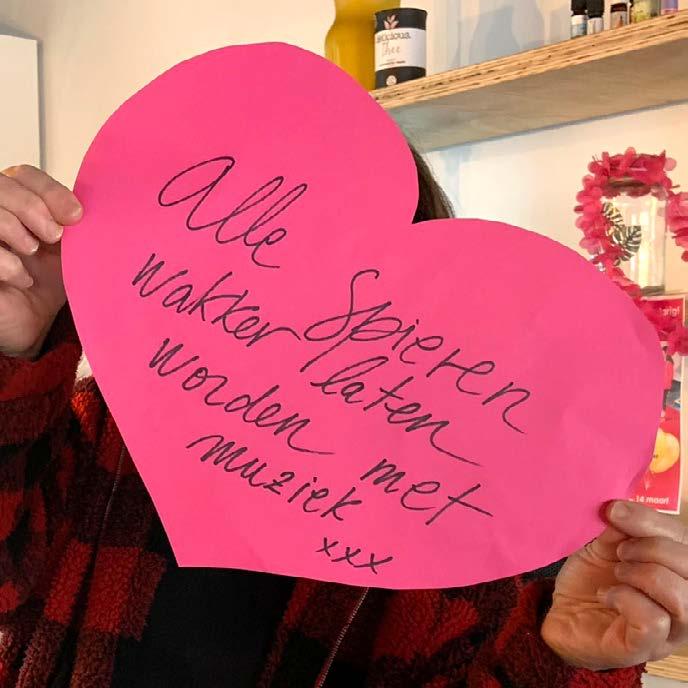 Alle Spieren
wakker laten
worden met
muziek
xxx
Thee
14 maart